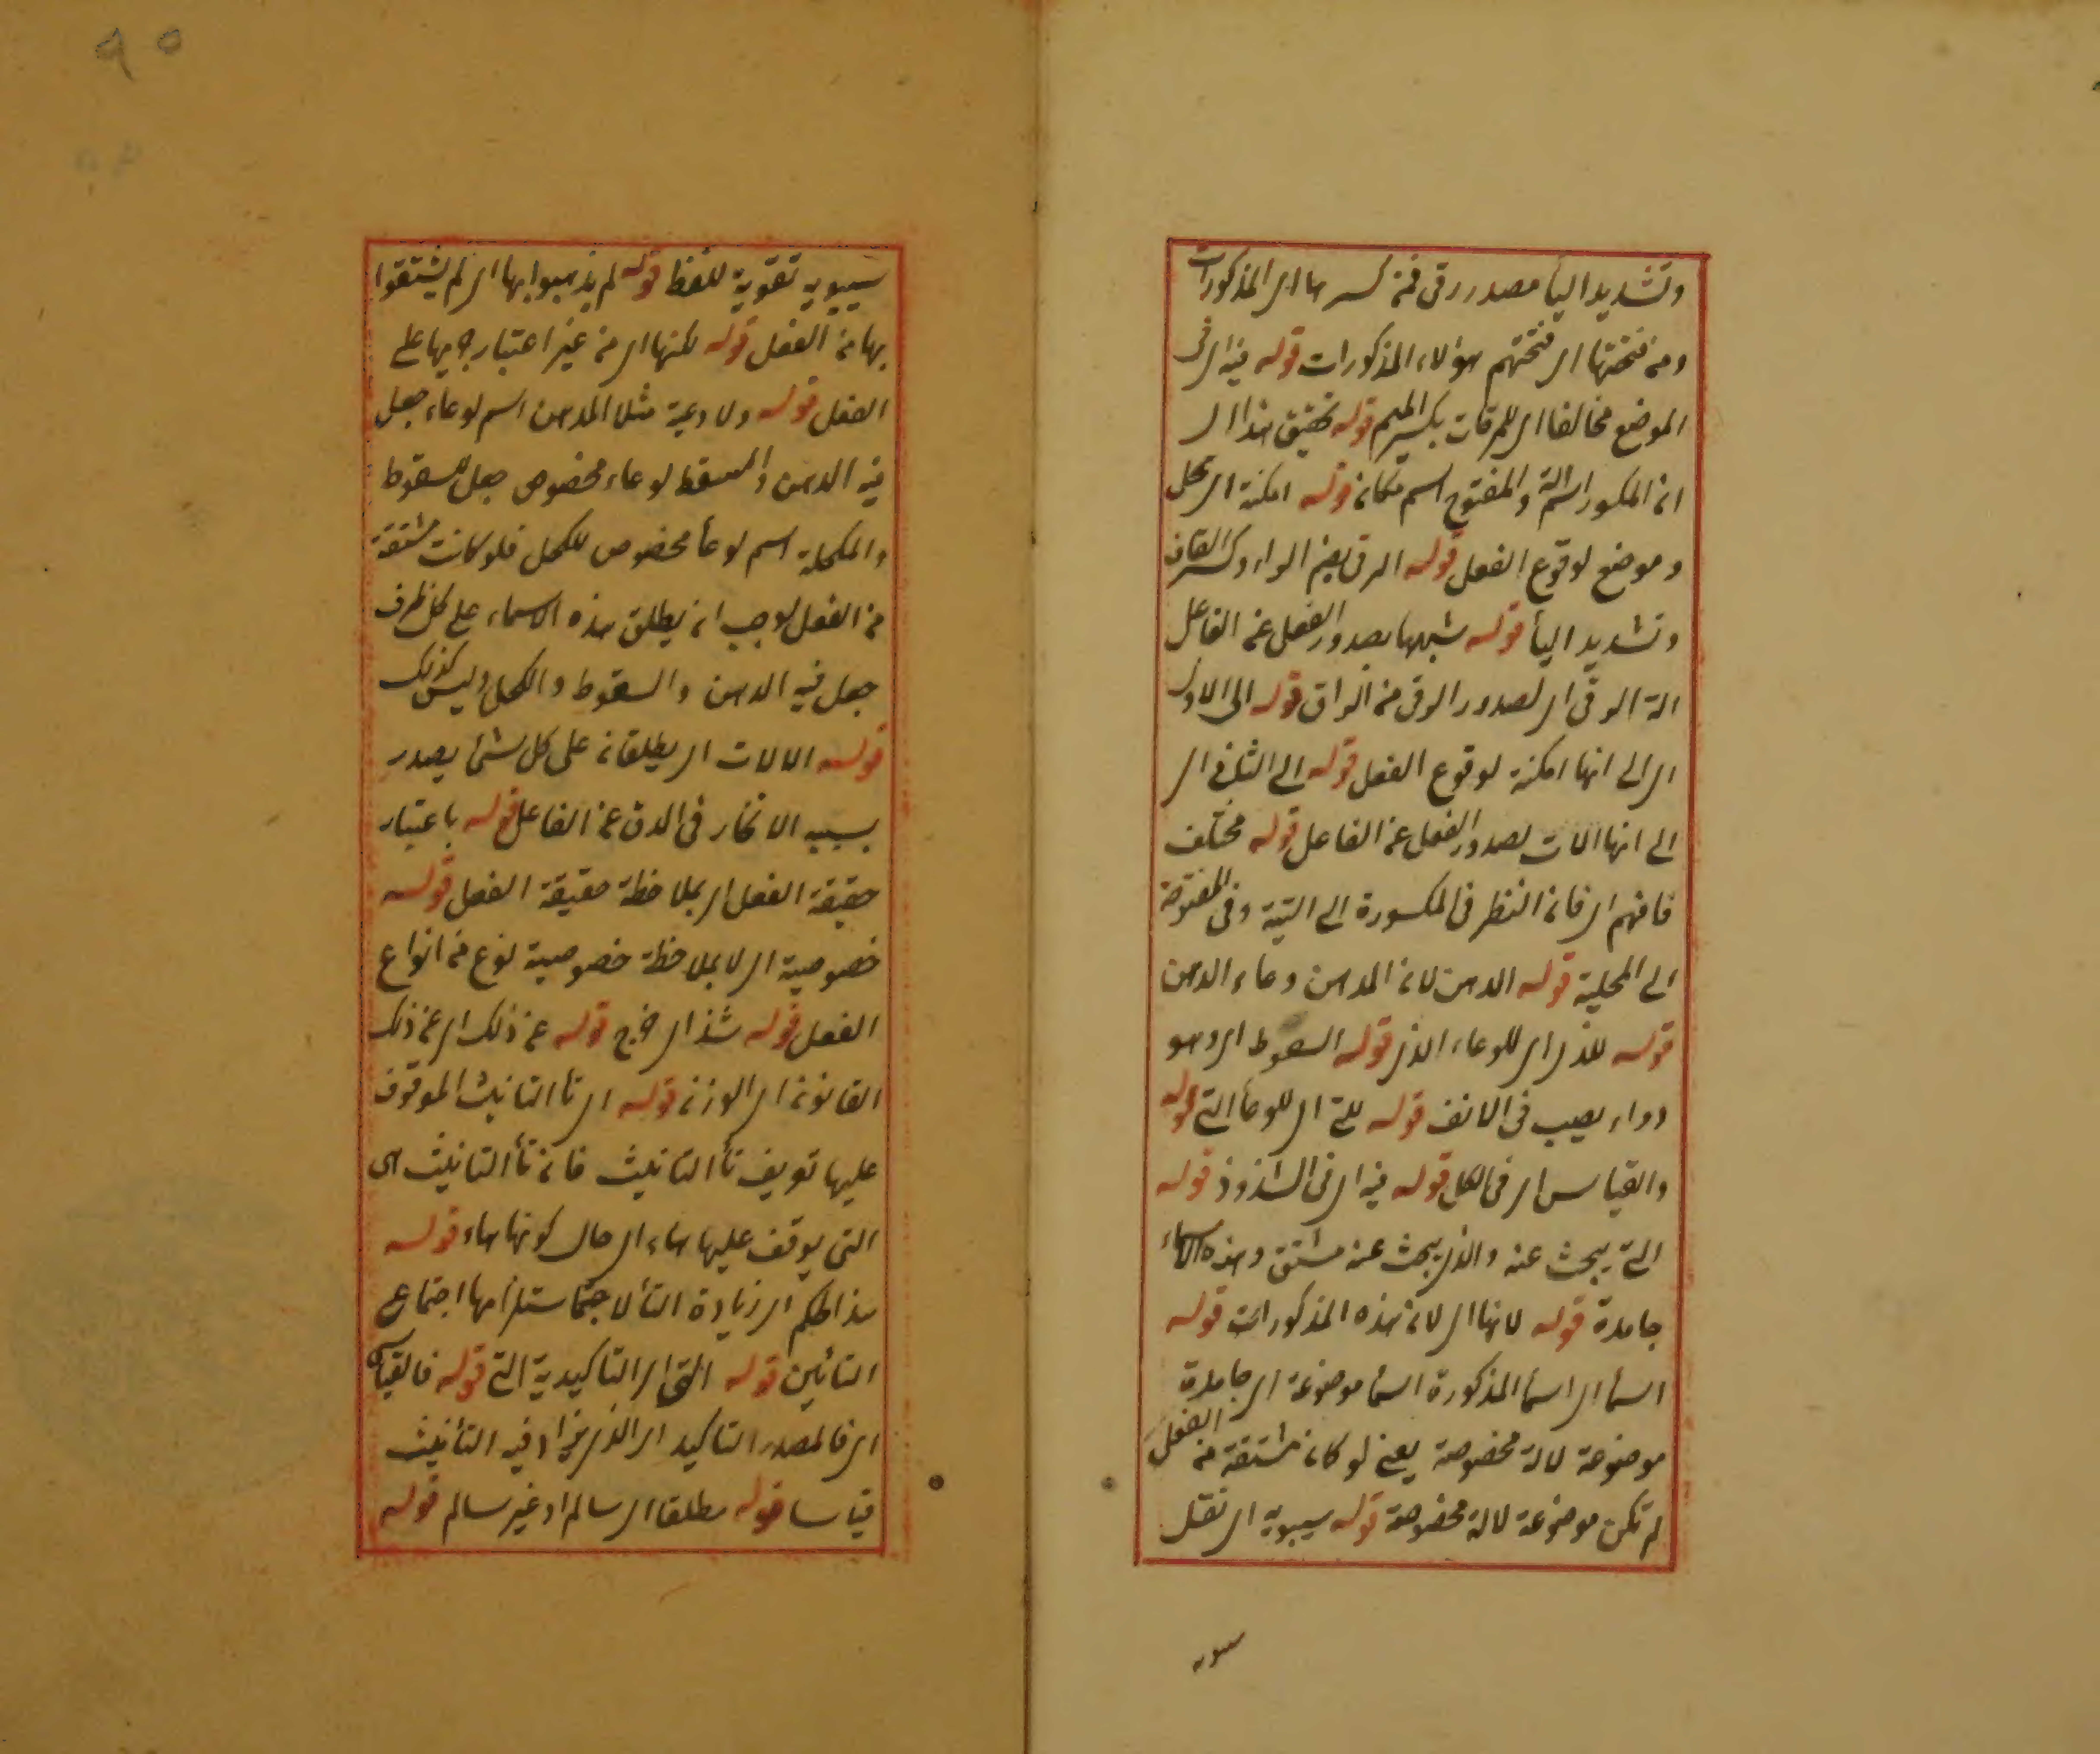 وتشديد اليأ مصدر رقى فمن كسرها اى المذكورات
ومن فتحتها اى فتحتهم هؤلاء المذكورات قوله فيه اى فى
الموضع مخالفا اى للمرقات بكسر الميم قوله تحقيق هذا اى
ان المكسور اسم الة والمفتوح اسم مكان قوله امكنة اى محل
وموضع لوقوع الفعل قوله الرقى بضم الراء وكسر القاف
وتشديد اليأ قوله شبهها بصدور الفعل عن الفاعل
الة الرقى اى لصدور الرقى من الراق قوله الى الاول
اى الى انها امكنة لوقوع الفعل قوله الى الثانى اى
الى انها الات لصدور الفعل عن الفاعل قوله مختلف
فافهم اى فان النظر فى المكسورة الى التية وفى المفتوحة
الى المحلية قوله الدهن لان المدهن وعاء الدهن
قوله للذى اى للوعاء الذى قوله السعوط اى وهو
دواء يصب فى الانف قوله للتى اى للوعأ التى قوله
والقياس اى فى الكل قوله فيه اى فى الشذوذ قوله
التى يبحث عنه والذى يبحث عنه مشتق وهذه الاسماء
جامدة قوله لانها اى لان هذه المذكورات قوله
اسمأ اى اسمأ المذكورة اسمأ موضوعة اى جامدة
موضوعة لالة مخصوصة يعنى لو كان مشتقة من الفعل
لم تكن موضوعة لالة مخصوصة قوله سيبويه اى نقل
سيبويه
٩٥
سيبويه تقوية للفظ قوله لم يذهبوا بها اى لم يشتقوا
بها من الفعل قوله لكنها اى من غير اعتبار جريها على
الفعل قوله ولاوعية مثلا المدهن اسم لوعاء جعل
فيه الدهن والمسعط لوعاء مخصوص جعل للسعوط
والمكحلة اسم لوعأ مخصوص للكحل فلو كانت مشتقة
من الفعل لوجب ان يطلق هذه الاسماء على كل ظرف
جعل فيه الدهن والسعوط والكحل وليس كذلك
قوله الالات اى يطلقان على كل شئ يصدر
بسببه الانخار فى الدق عن الفاعل قوله باعتبار
حقيقة الفعل اى بملاحظة حقيقة الفعل قوله
خصوصية اى لا بملاحظة خصوصية نوع من انواع
الفعل قوله شذ اى خرج قوله عن ذلك اى عن ذلك
القانون اى الوزن قوله اى تأ التانيث الموقوف
عليها تعريف تأ التانيث فان تأ التانيث هى
التى يوقف عليها هاء اى حال كونها هاء قوله
هذا الحكم اى زيادة التأ لاجتماستلزامها اجتماع
التائين قوله التى اى التاكيدية التى قوله فالقياس
اى فالمصدر التاكيد اى الذى يزاد فيه التأنيث
قياسا قوله مطلقا اى سالم او غير سالم قوله